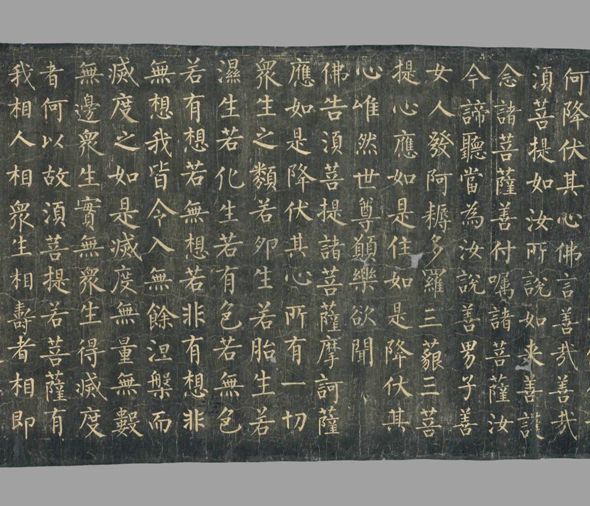 何降伏其心佛言善哉善哉
須菩提如汝所說如来善護
念諸菩薩善付囑諸菩薩汝
今諦聽當為汝說善男子善
女人發阿耨多羅三藐三菩
提心應如是住如是降伏其
心唯然世尊願樂欲聞
佛告須菩提諸菩薩摩訶薩
應如是降伏其心所有一切
衆生之類若卵生若胎生若
濕生若化生若有色若無色
若有想若無想若非有想非
無想我皆令入無餘涅槃而
滅度之如是滅度無量無數
無邊衆生實無衆生得滅度
者何以故須菩提若菩薩有
我相人相衆生相壽者相即